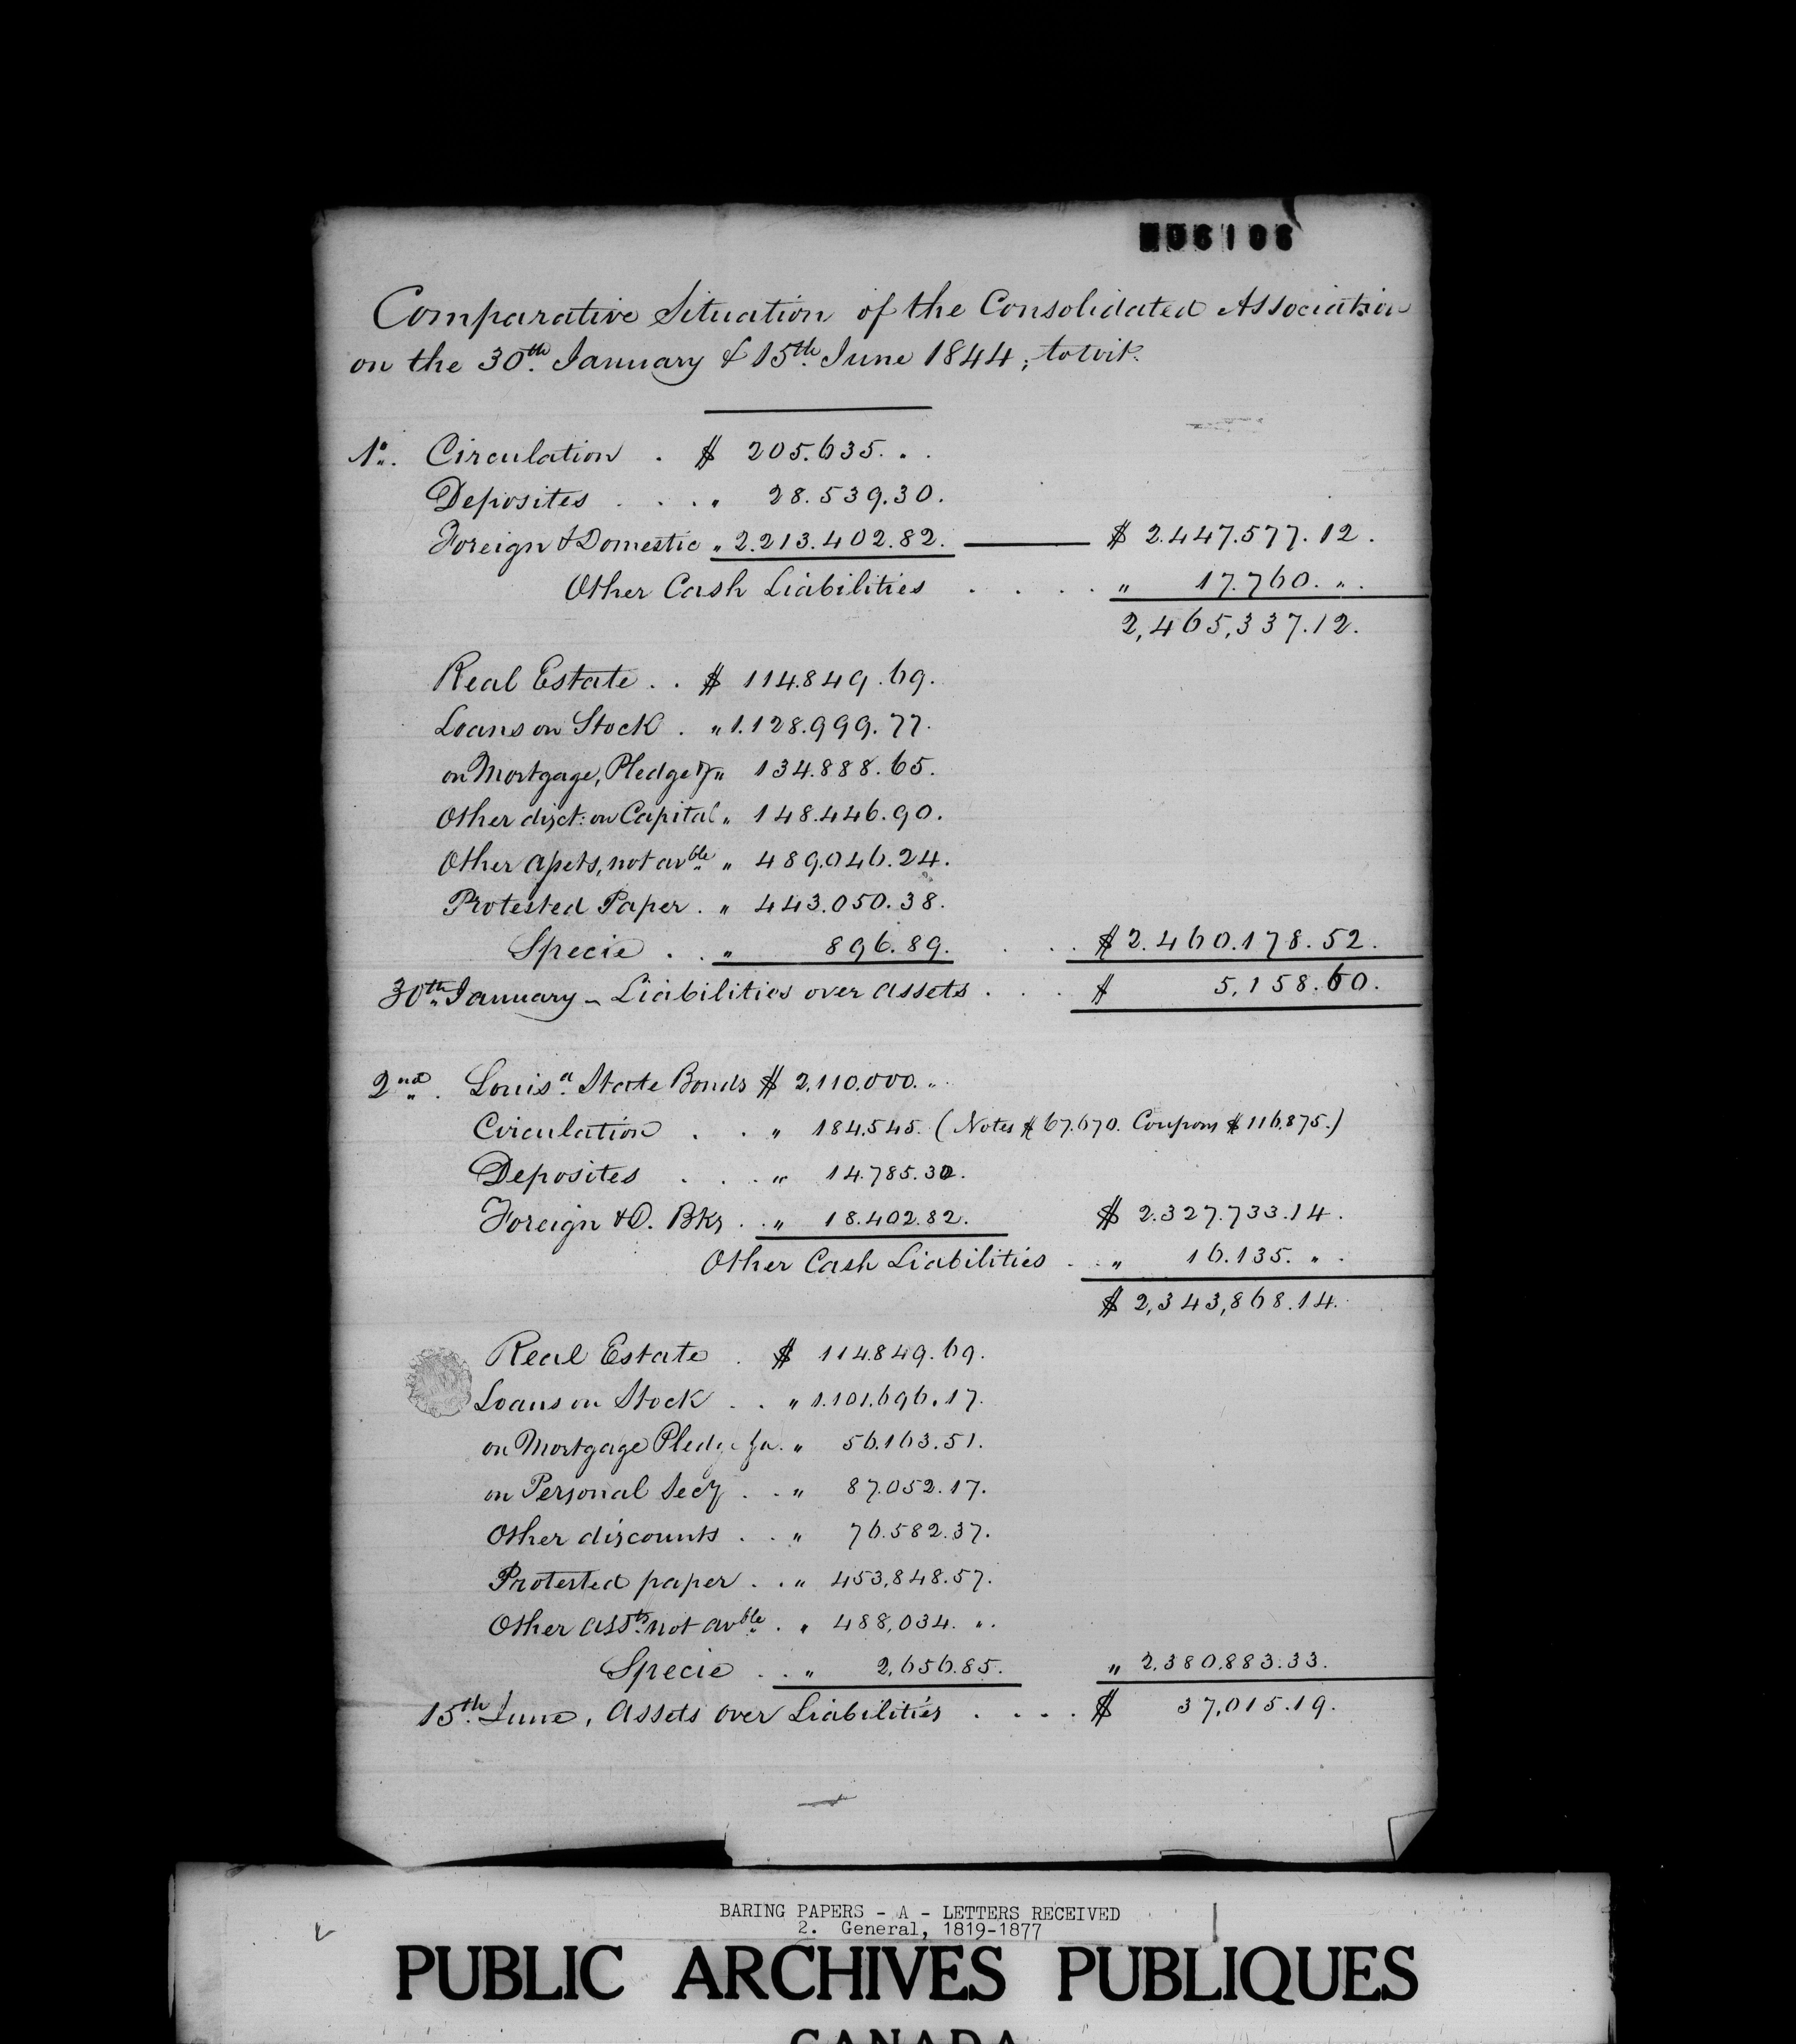 Comparative Situation of the Consolidated Association
on the 30th. January & 15th. June 1844; towit.
1o. Circulation . $ 205.635. . .
Deposites . . . " 28.539.30.
Foreign & Domestic " 2.213.402.82. $ 2.447.577.12.
Other Cash Liabilities . . . . " 17.760. " .
2,465,337.12.
Real Estate . . $ 114.849.69.
Loans on Stock . " 1.128.999.77.
on Mortgage, Pledge &a " 134.888.65.
Other disct: on Capital " 148.446.90.
Other assets, not avble " 489.046.24.
Protested Paper . " 443.050.38.
Specie . . " 896.89. . . . $ 2.460.178.52.
30th January – Liabilities over assets . . . $ 5,158.60.
2nd. Louisa. State Bonds $ 2,110,000. " .
Circulation . . " 184,545. (Notes $ 67.670. Coupons $ 116,875.)
Deposites . . . " 14.785.32.
Foreign & D. Bks . . " 18.402.82. $ 2.327.733.14.
Other Cash Liabilities . . " 16.135. " .
$ 2,343,868.14.
Real Estate . $ 114.849.69.
Loans on Stock . . " 1.101.696.17.
on Mortgage Pledge &a. " 56.163.51.
on Personal Secy . . " 87.052.17.
Other discounts . . " 76.582.37.
Protested paper . . " 453,848.57.
Other assts. not avble . " 488,034. " .
Specie . . " 2,656.85. " 2,380,883.33.
15th. June, Assets over Liabilities . . . . $ 37,015.19.
BARING PAPERS - A - LETTERS RECEIVED
2. General, 1819-1877
PUBLIC ARCHIVES PUBLIQUES
CANADA